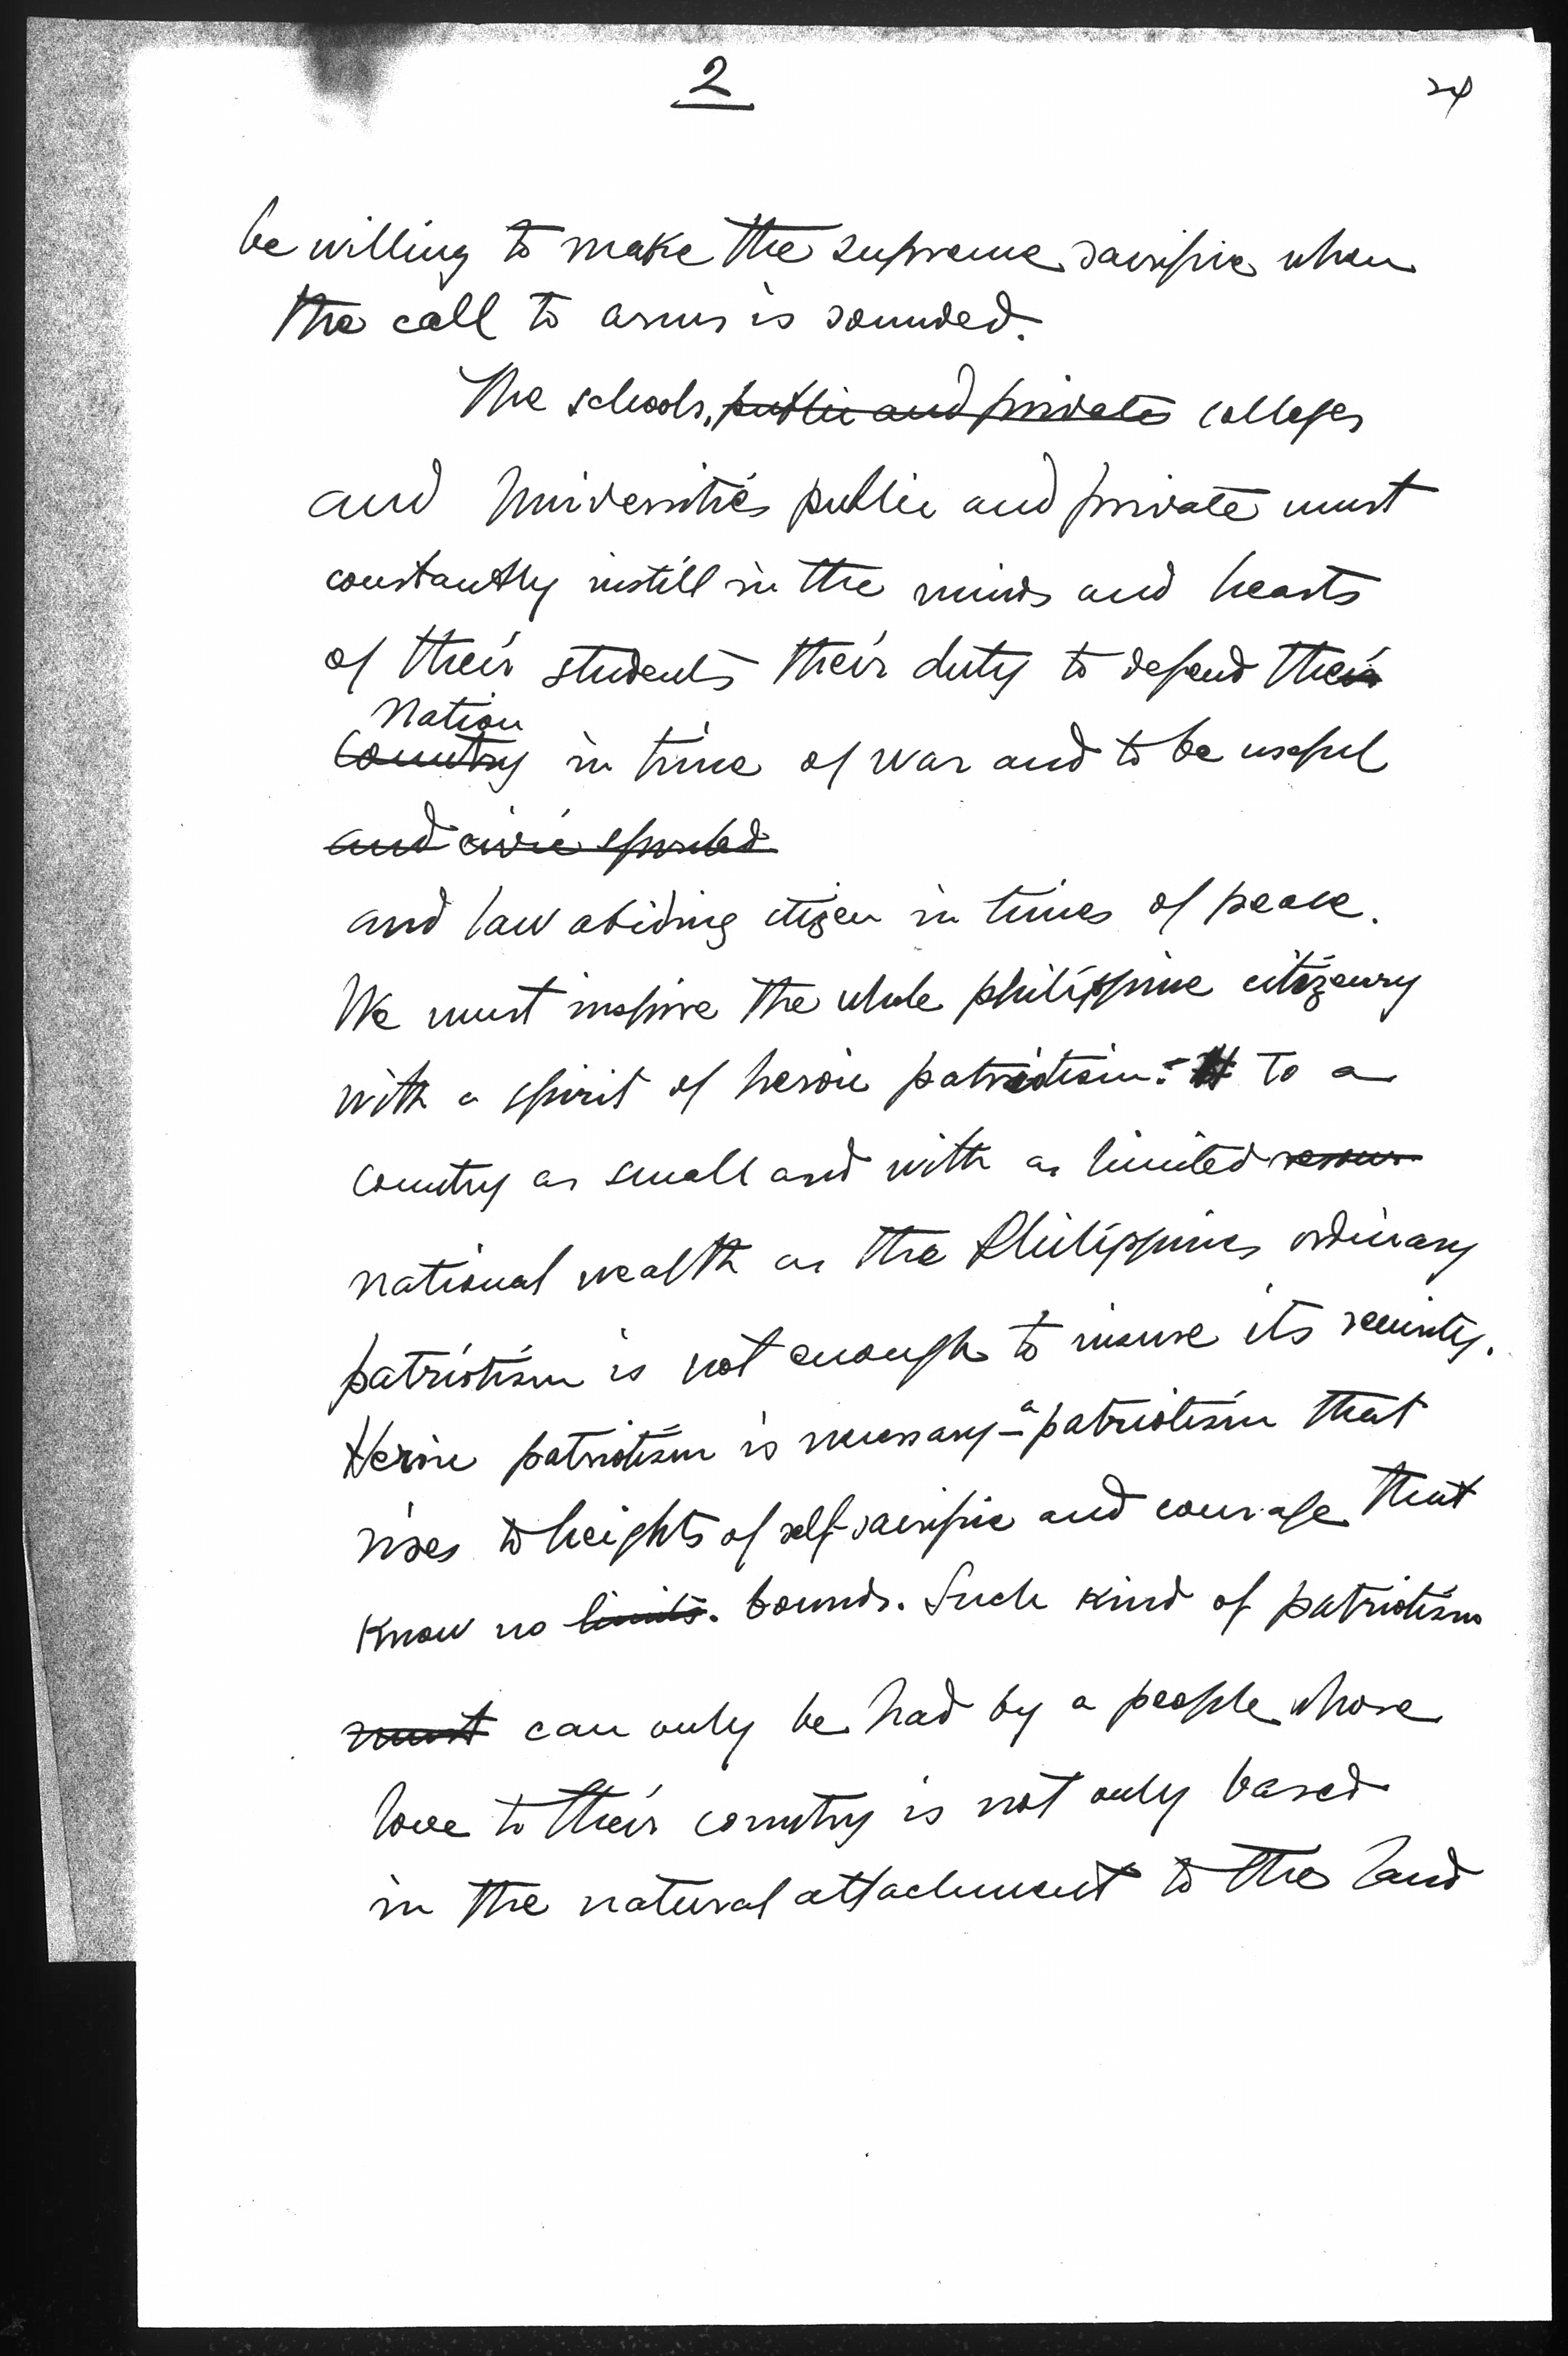 2
24
be willing to make the supreme sacrifice when
the call to arms is sounded.
The schools, public and private colleges
and Universities public and private must
constantly instill in the minds and hearts
of their students their duty to defend their
Nation
Country in time of war and to be useful
and civic spirited
and law abiding citizen in times of peace.
We must inspire the whole philippine citizenry
with a spirit of heroic patriotism: to a
country as small and with as limited resour
national wealth as the Philippines ordinary
patriotism is not enough to insure its security.
Heroic patriotism is necessary – a patriotism that
rises to heights of self-sacrifice and courage that
know no limits. bounds. Such kind of patriotism
must can only be had by a people whose
love to their country is not only based
in the natural attachment to the land